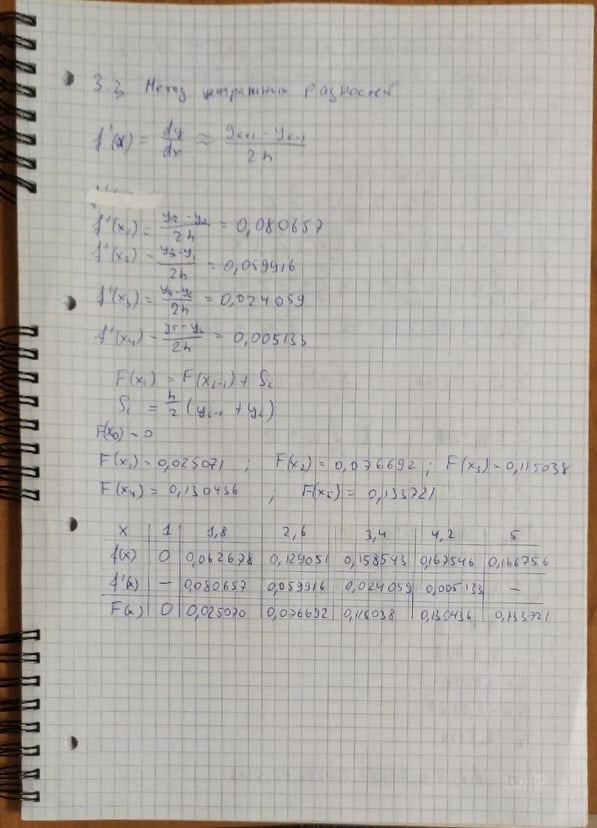 3.3 Метод центральных разностей
f'(x) = dy/dx ≈ (yₖ₊₁ - yₖ₋₁)/2h
f'(x₁) = (y₂ - y₀)/2h = 0,080657
f'(x₂) = (y₃ - y₁)/2h = 0,059916
f'(x₃) = (y₄ - y₂)/2h = 0,024059
f'(x₄) = (y₅ - y₃)/2h = 0,005133
F(xᵢ) = F(xᵢ₋₁) + Sᵢ
Sᵢ = h/2 (yᵢ₋₁ + yᵢ)
F(x₀) = 0
F(x₁) = 0,025071 ; F(x₂) = 0,076692 ; F(x₃) = 0,115038
F(x₄) = 0,130436 ; F(x₅) = 0,133721
x 1 1,8 2,6 3,4 4,2 5
f(x) 0 0,062678 0,129051 0,158543 0,167546 0,166756
f'(x) — 0,080657 0,059916 0,024059 0,005133 —
F(x) 0 0,025070 0,076692 0,115038 0,130436 0,133721